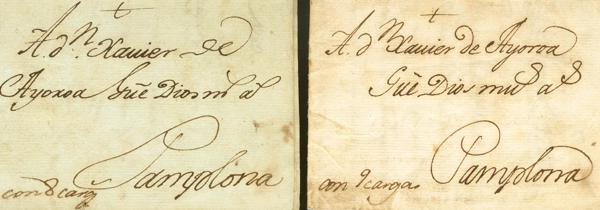 A. d.ⁿ Xavier de
Ayoroa Gūe Dios m.ˢ a.ˢ
Pamplona
con 8 carg.ˢ
A. d.ⁿ Xavier de Ayoroa
Gūe Dios mu.ˢ a.ˢ
Pamplona
con 9 cargas